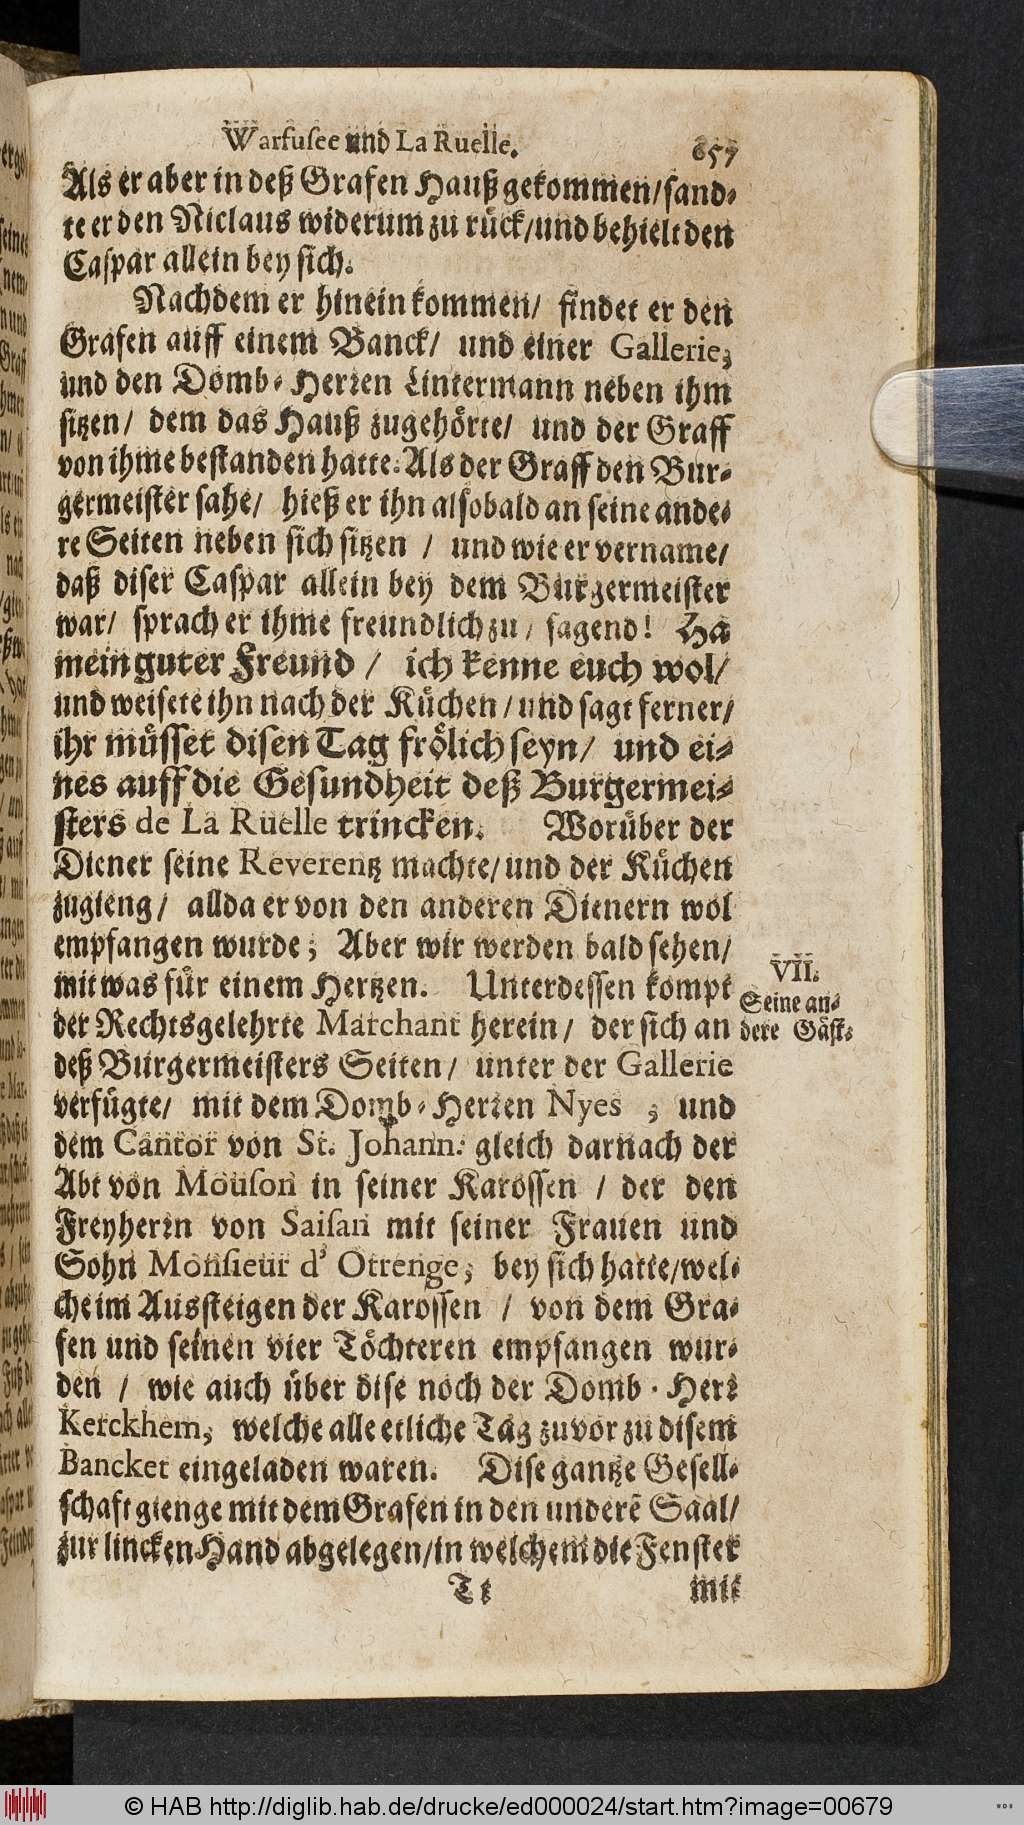 Warfusee und La Ruelle.
657
Als er aber in deß Grafen Hauß gekommen/ sand-
te er den Niclaus widerum zu rück/ und behielt den
Caspar allein bey sich.
Nachdem er hinein kommen/ findet er den
Grafen auff einem Banck/ und einer Gallerie,
und den Domb-Herren Lintermann neben ihm
sitzen/ dem das Hauß zugehörte/ und der Graff
von ihme bestanden hatte. Als der Graff den Bur-
germeister sahe/ hieß er ihn alsobald an seine ande-
re Seiten neben sich sitzen / und wie er vername/
daß diser Caspar allein bey dem Burgermeister
war/ sprach er ihme freundlich zu/ sagend! Ha
mein guter Freund / ich kenne euch wol/
und weisete ihn nach der Küchen / und sagt ferner/
ihr müsset disen Tag frölich seyn/ und ei-
nes auff die Gesundheit deß Burgermei-
sters de La Ruelle trincken. Worüber der
Diener seine Reverentz machte/ und der Küchen
zugieng/ allda er von den anderen Dienern wol
empfangen wurde; Aber wir werden bald sehen/
mit was für einem Hertzen. Unterdessen kompt
der Rechtsgelehrte Marchant herein/ der sich an
deß Burgermeisters Seiten/ unter der Gallerie
verfügte/ mit dem Domb-Herren Nyes , und
dem Cantor von St. Johann. gleich darnach der
Abt von Mouson in seiner Karossen / der den
Freyherrn von Saisan mit seiner Frauen und
Sohn Monsieur d' Otrenge, bey sich hatte/ wel-
che im Aussteigen der Karossen / von dem Gra-
fen und seinen vier Töchteren empfangen wur-
den / wie auch über dise noch der Domb-Herr
Kerckhem, welche alle etliche Tag zuvor zu disem
Bancket eingeladen waren. Dise gantze Gesell-
schaft gienge mit dem Grafen in den underẽ Saal/
zur lincken Hand abgelegen/ in welchem die Fenster
Tt
mit
VII.
Seine an-
dere Gäst.
© HAB http://diglib.hab.de/drucke/ed000024/start.htm?image=00679